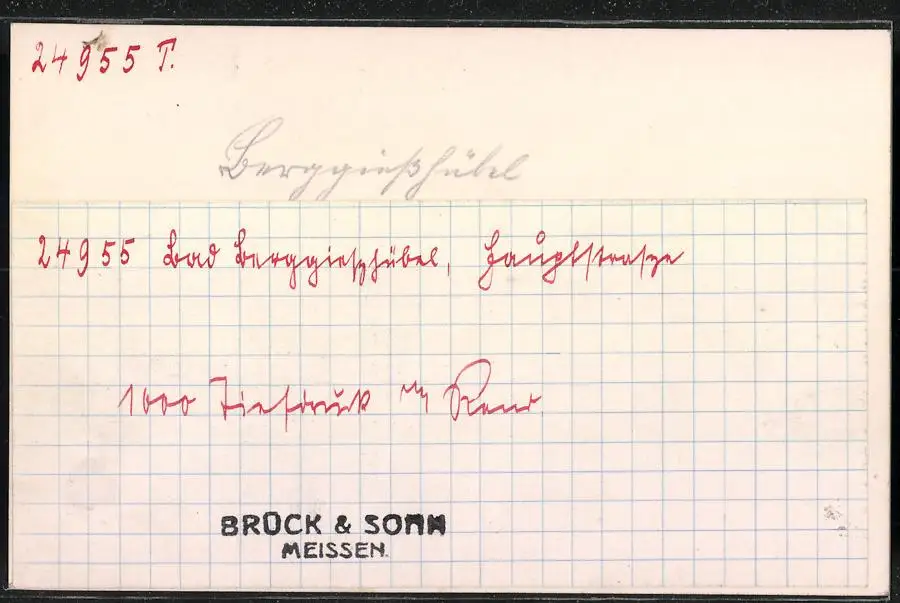 24955 T.
Berggießhübel
24955 Bad Berggieszhübel, Hauptstrasze
1000 Tiefdruck m Rand
BRÜCK & SOHN
MEISSEN.